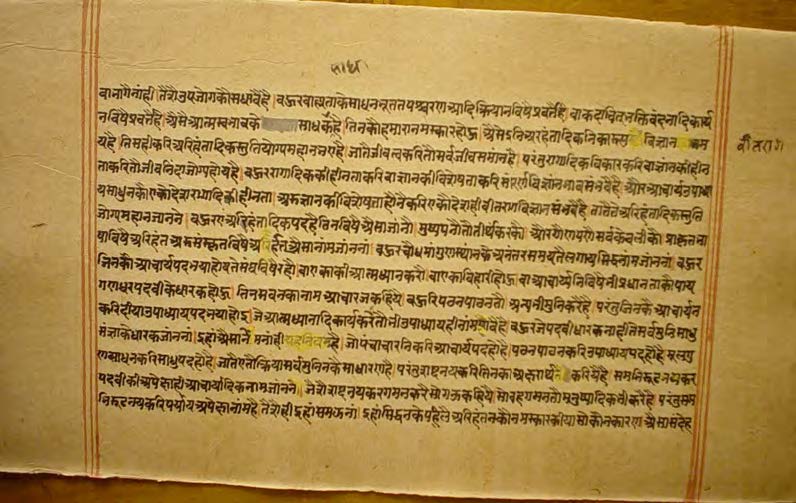 साध
तैसेउपजोगकौसधावैहै। बऊरबाह्यताकेसाधनभूततपश्चरणआदिक्रियानविषैप्रवर्तैहै। वाकदाचितभक्तिवंदनादिकार्य
नविषैप्रवर्तैहै। अैसेआत्मस्वभावके साधकहै। तिनकौहमारानमस्कारहोऊ। अैसेइनिअरहंतादिकनिका विज्ञान म
वीतराग
यहै। तिसहीकरिअरिहंतादिकस्तुतियोग्यमहानभएहै। जातैजीवत्वकरितोसर्वजीवसमानहै। परंतुरागादिकविकारकरिवाज्ञानकीहीन
ताकरितौजीवनिंदाजोग्यहोयहै। बऊररागादिककीहीनताकरिवाज्ञानकीविशेषताकरि संभवैहै। औरआचार्यउपाध्या
यसाधुनकैएकोदेशरागादिकीहीनता। अरुज्ञानकीविशेषताहोनैकरिएकोदेशहीवीतरागविज्ञानसंभवैहै। तातैतेअरिहंतादिकस्तुति
जोग्यमहानजानने। बऊरएअरिहंतादिकपदहैतिनविषैअैसाजानौ। मुख्यपनौतौतीर्थंकरको। औरगौणपणैसर्वकेवलीको।
षाविषैअरिहंतअरुसंस्कृतविषैअर्हंतअैसानामजाननां। बऊरचौधमांगुणस्थानकैअनंतरसमयतैलगायसिद्धनामजाननां। बऊर
जिनकौआचार्यपदभयाहोइतेसंघविषैरहौ। वाएकाकीआत्मध्यानकरो। वाएकविहारीहोऊ। वाआचार्यनिविषैभीप्रधानताकौपाय
गणधरपदवीकेधारकहोऊ। तिनसबनकानामआचारजकहियै। बऊरिपठनपाठनतौ। अन्यभीमुनिकरैहै। परंतुजिनकैआचार्यन
करिदीयाउपाध्यायपदभयाहोइ। जेआत्मध्यानादिकार्यकरैतौभीउपाध्यायहीनांमपावैहै। बऊरजेपदवीधारकनाहीतेसर्वमुनिसाधु
संज्ञाकेधारकजाननां। इहांअैसानेमनांही जोपंचाचारनिकरिआचार्यपदहोहै। पठनपाठनकरिउपाध्यायपदहोहै। मूलगु
णसाधनकरिसाधुपदहोहै। जातैएतोक्रियासर्वमुनिनकैसाधारणहै। परंतुशब्दनयकरितिनका करियैहै। समभिरूढनयकर
पदवीकीअपेक्षाहीआचार्यादिकनामजानने। जैसेशब्दनयकरगमनकरैसोगऊकहियै। सोगमनतोमनुष्यादिकभीकरैहै। परंतुसम
भिरूढनयकरिपर्यायअपेक्षानांमहै। तैसेहीइहांसमझनां। इहांसिद्धनकेपहैलेअरिहंतनकौनमस्कारकीयासोकौनकारणअैसासंदेह